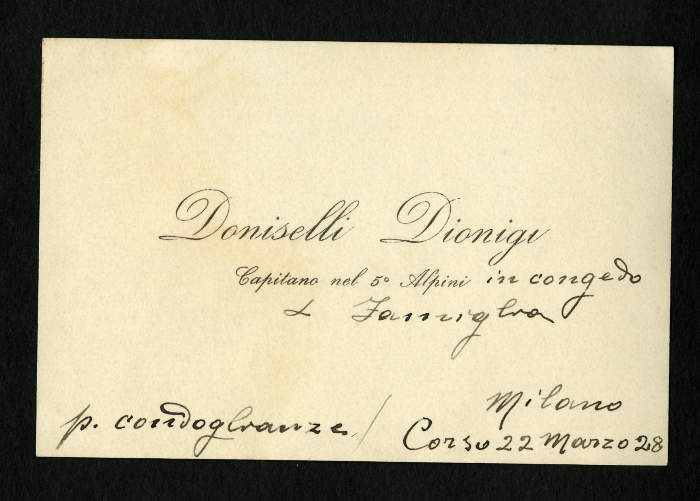 Doniselli Dionigi
Capitano nel 5º Alpini in congedo
e Famiglia
p. condoglianze /
Milano
Corso 22 Marzo 28